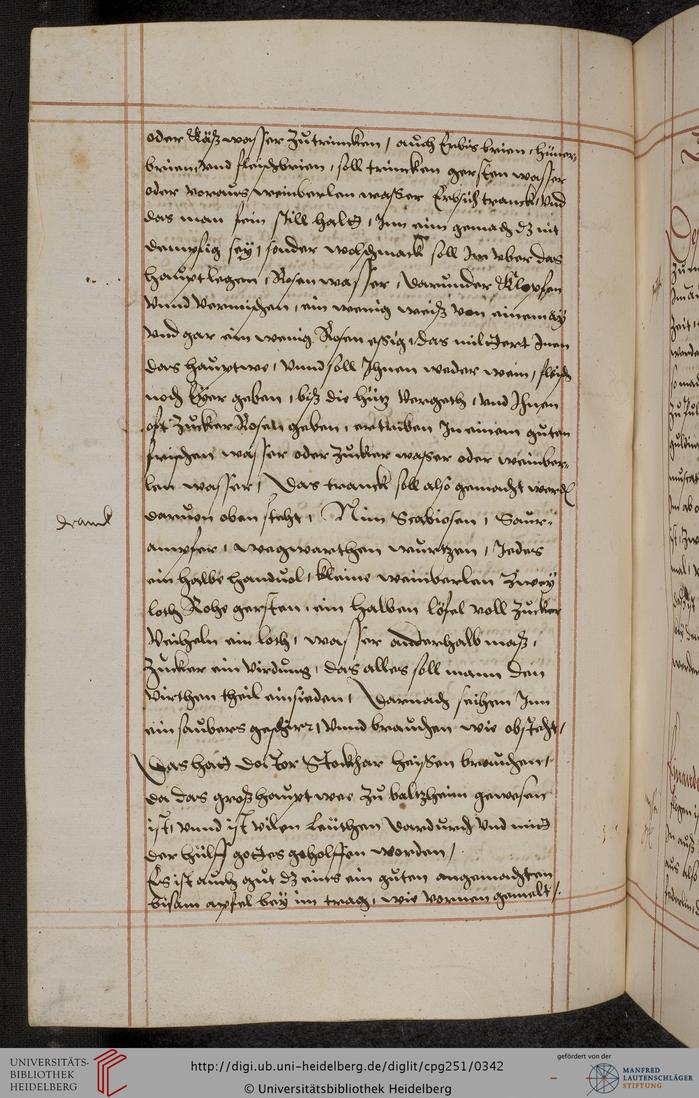 oder Käß wasser zutrincken, auch Erbis brien, hüner
brien, vnd fleischbrien, soll trincken gersten wasser
oder voraus weinberlen wasser Erbsich tranck, vnd
das man sein still halt, Inn eim gemach dz nit
dempfig sey, sonder wolschmack soll Im vber das
haupt legen, Rosen wasser, darunder Klopfen
vnnd vermischen, ein wenig weiß von einem ay
vnd gar ein wenig Rosen essig, das miltert Inen
das hauptwe, vnnd soll Ihnen weder wein, fleisch
noch Eyer geben, biß die hütz vergeth, vnd Ihnen
oft Zucker Rosen geben, ertriben In einem guten
frischen wasser oder Zucker wasser oder weinber-
len wasser, Das tranck soll also gemacht werd
daruon oben steht, Nim Scabiosen, Saur-
ampfer, wegwarthen wurtzen, Jedes
ein halbe handuol, kleine weinberlen Zwey
loth Rohe gersten, ein halben löfel voll Zucker
Veiheln ein loth, wasser anderhalb maß,
Zucker ein virdung, das alles soll mann den
virthen theil einsieden, Darnach seihen Inn
ein saubers geschirr, vnnd brauchen wie obsteht,
Das hatt doctor Stockhar heissen brauchen,
da das groß haupt wee zu baltzheim gewesen
ist, vnnd ist vilen leüthen dardurch vnd mitt
der hülff gottes geholffen worden /
Es ist auch gut dz eins ein guten angemachten
bisam apfel bey im trag, wie vornen gemelt /
dranck
UNIVERSITÄTS-
BIBLIOTHEK
HEIDELBERG
http://digi.ub.uni-heidelberg.de/diglit/cpg251/0342
© Universitätsbibliothek Heidelberg
gefördert von der
MANFRED
LAUTENSCHLÄGER
STIFTUNG